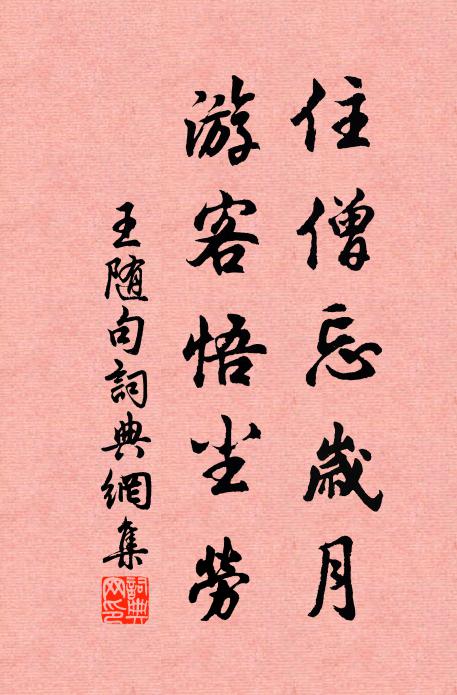 住僧忘歲月
游客悟尘勞
王随句詞典網集
詞典网印